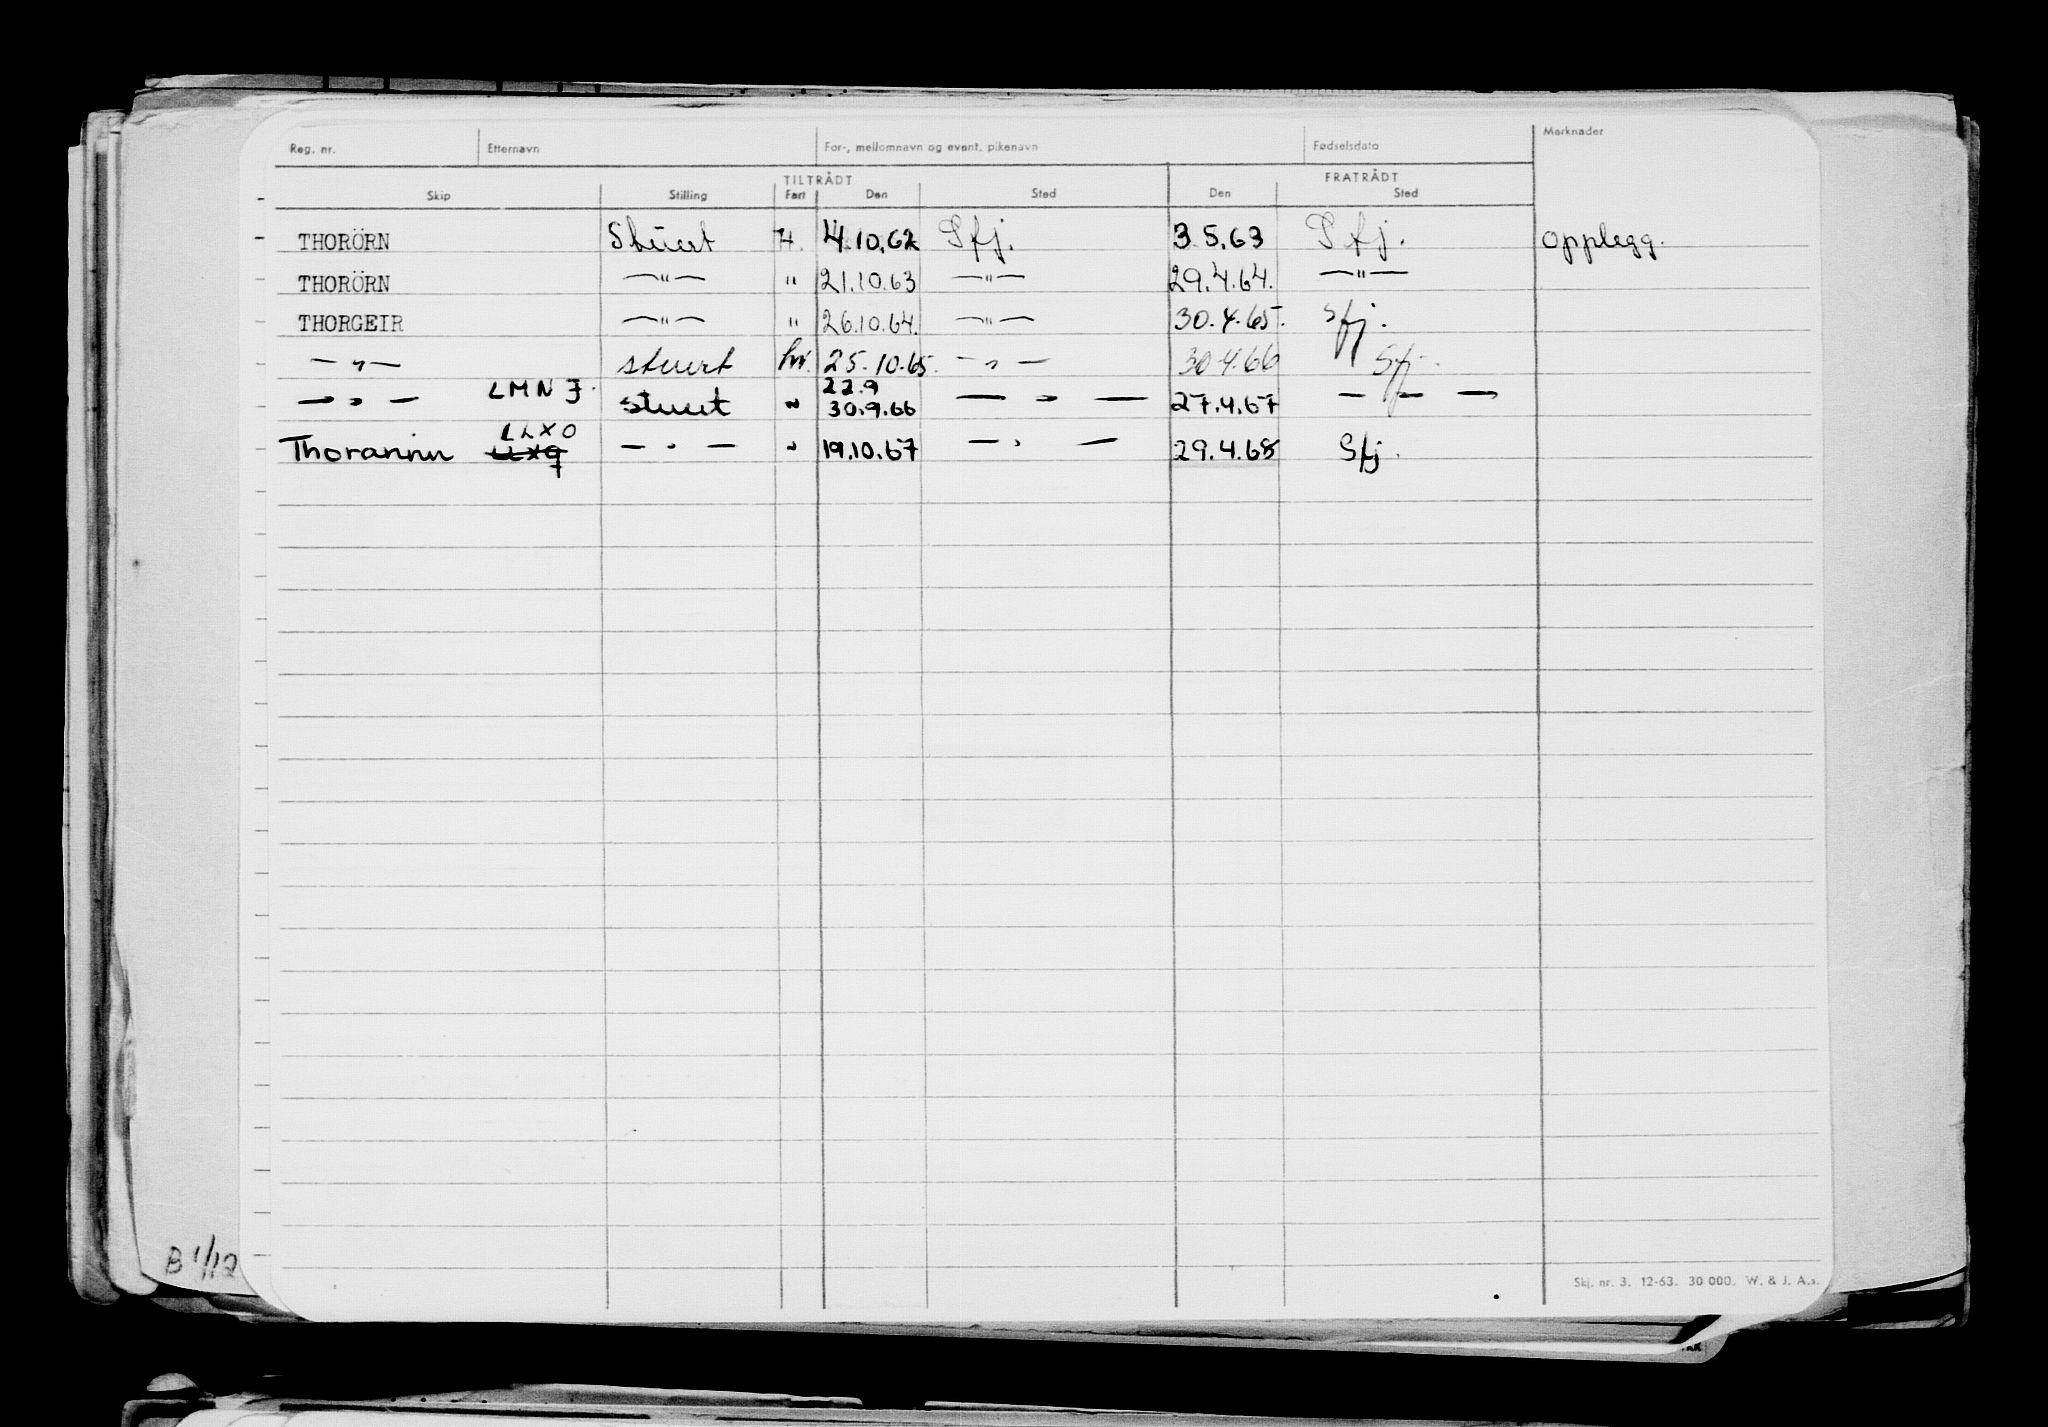 Reg. nr. Etternavn For-, mellomnavn og event. pikenavn Fødselsdato Merknader
TILTRÅDT FRATRÅDT
Skip Stilling Fart Den Sted Den Sted
THORÖRN Stuert H. 4.10.62 Sfj. 3.5.63 Sfj. Opplegg.
THORÖRN —"— " 21.10.63 —"— 29.4.64. —"—
THORGEIR —"— " 26.10.64. —"— 30.4.65. Sfj.
—"— stuert hv. 25.10.65. —"— 30.4.66 Sfj.
LMNJ. 22.9
—"— stuert " 30.9.66 —"— 27.4.67 —"—
LLXO
Thorarinn LLXQ —"— " 19.10.67 —"— 29.4.68 Sfj.
B 1/12
Skj. nr. 3. 12-63. 30 000. W. & J. A.s.